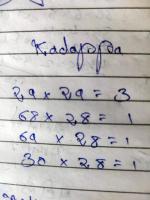 Kadappa
29 x 29 = 3
68 x 28 = 1
69 x 28 = 1
30 x 28 = 1